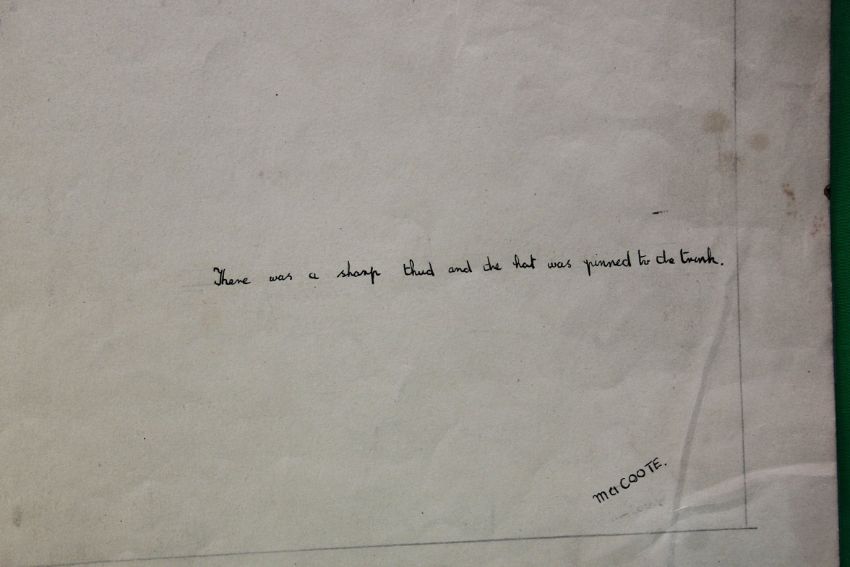 There was a sharp thud and the hat was pinned to the trunk.
M A COOTE.